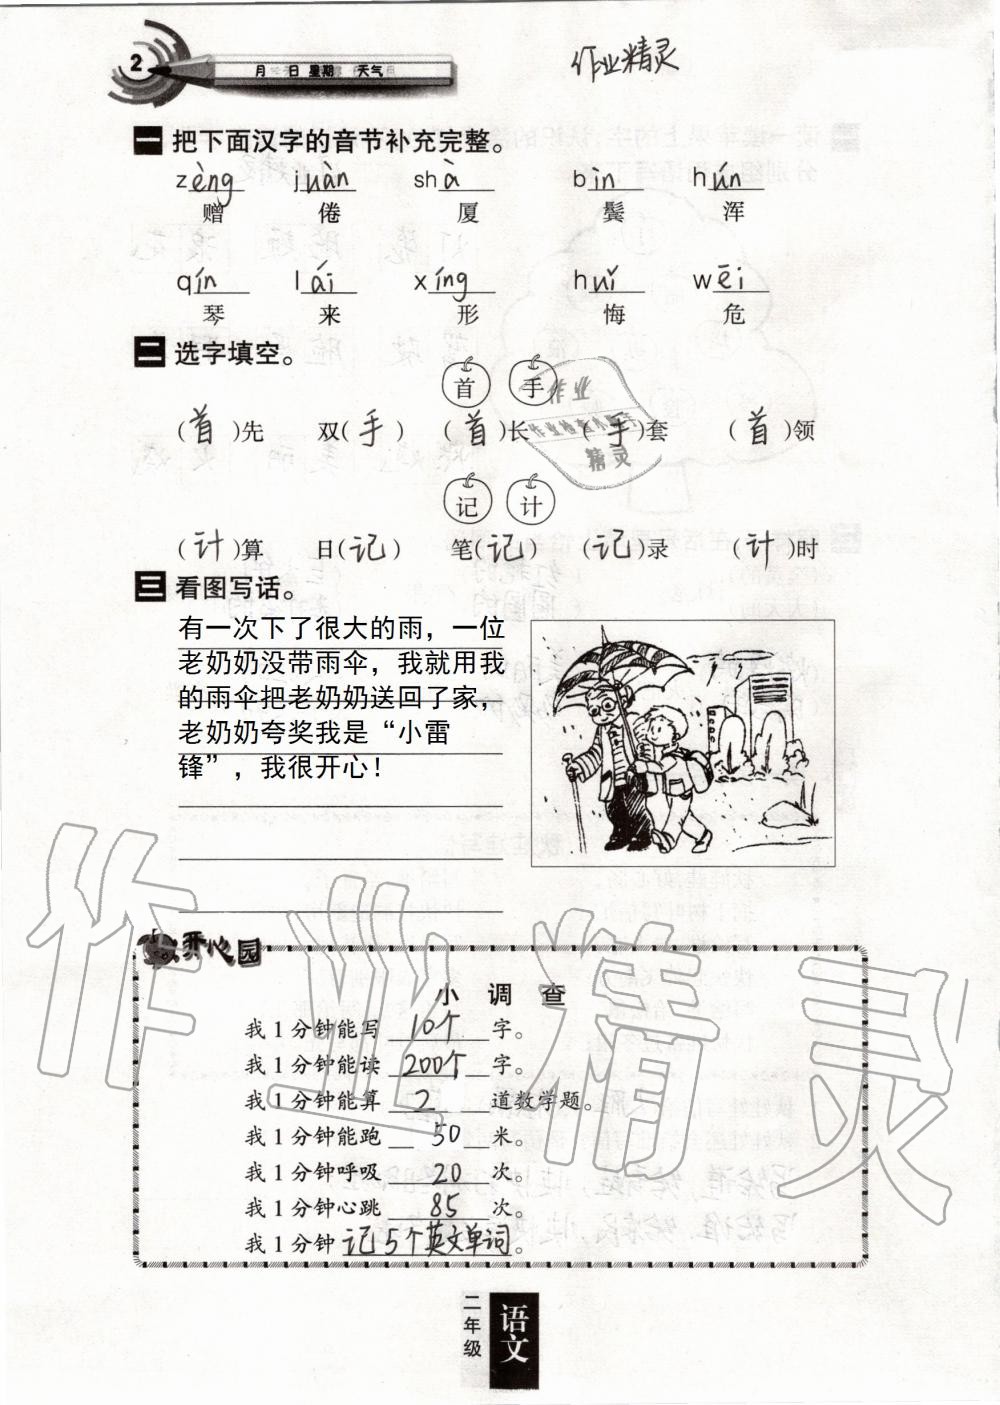 2
月 日 星期 天气
作业精灵
一 把下面汉字的音节补充完整。
zèng juàn shà bìn hún
赠 倦 厦 鬓 浑
qín lái xíng huǐ wēi
琴 来 形 悔 危
二 选字填空。
首 手
(首)先 双(手) (首)长 (手)套 (首)领
作业
作业检查小助手
精灵
记 计
(计)算 日(记) 笔(记) (记)录 (计)时
三 看图写话。
有一次下了很大的雨，一位
老奶奶没带雨伞，我就用我
的雨伞把老奶奶送回了家，
老奶奶夸奖我是“小雷
锋”，我很开心！
作业精灵
开心园
小调查
我1分钟能写 10个 字。
我1分钟能读 200个 字。
我1分钟能算 2 道数学题。
我1分钟能跑 50 米。
我1分钟呼吸 20 次。
我1分钟心跳 85 次。
我1分钟 记5个英文单词。
二年级
语文